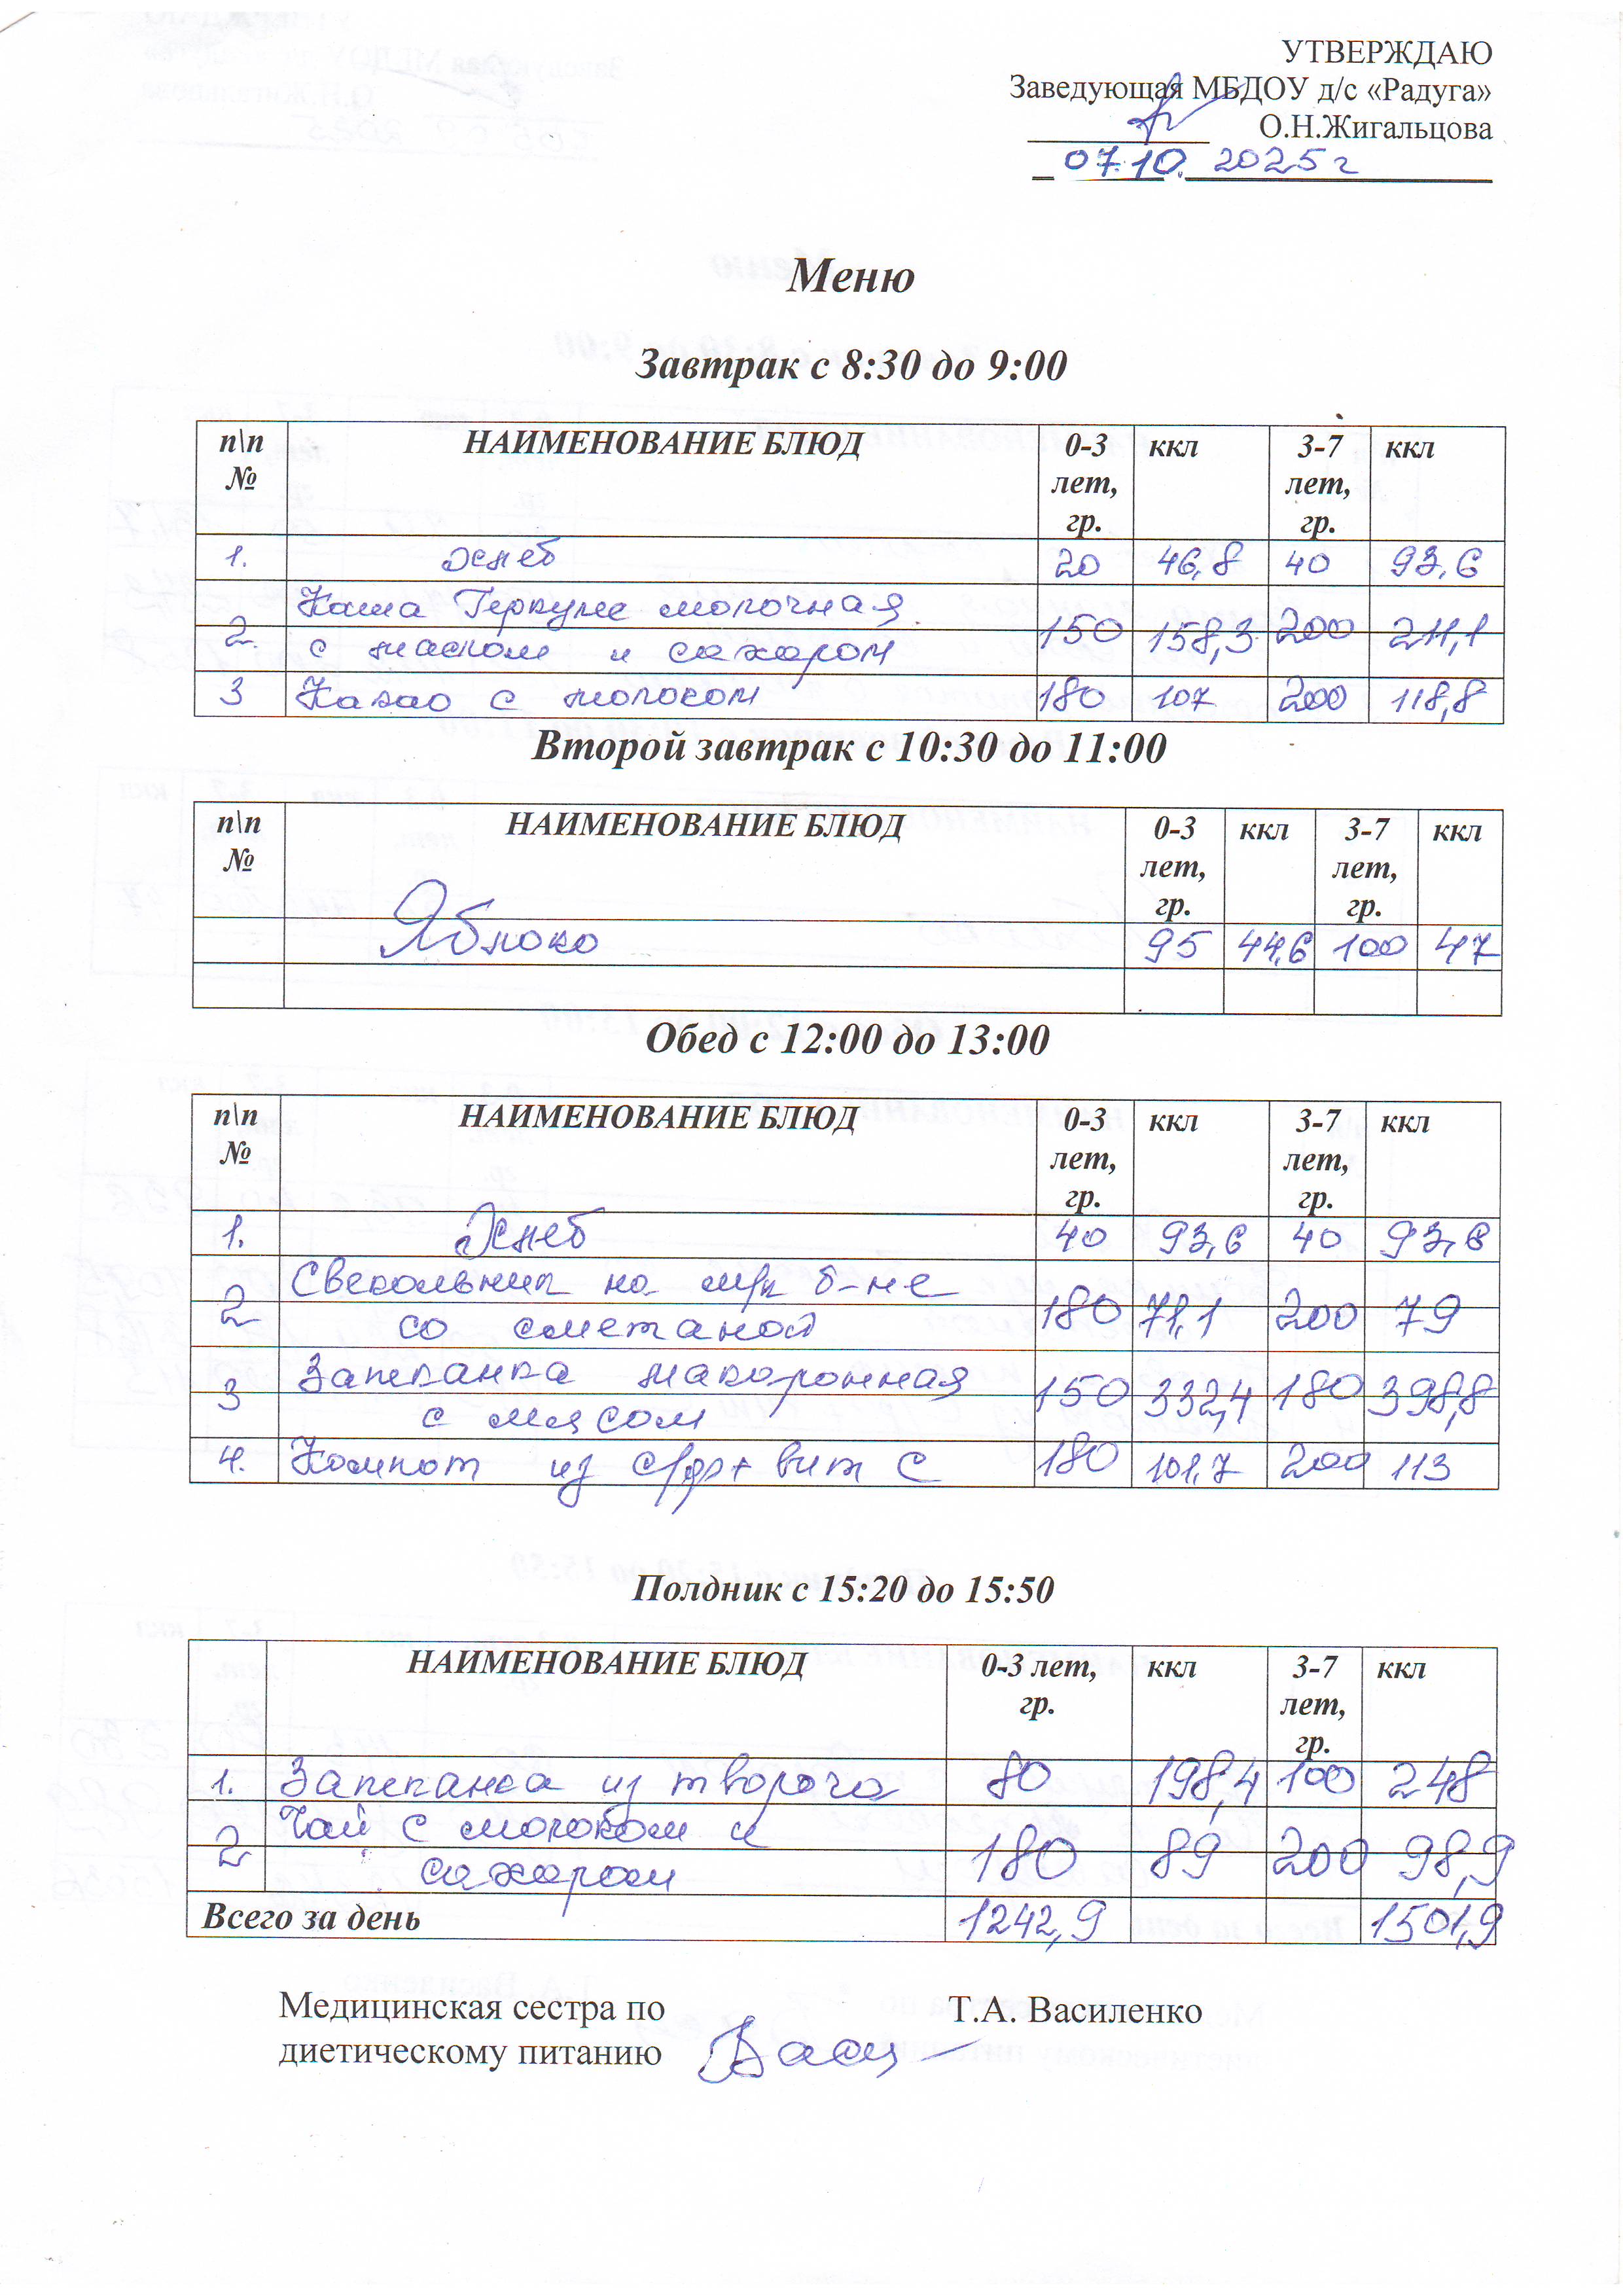 УТВЕРЖДАЮ
Заведующая МБДОУ д/с «Радуга»
О.Н.Жигальцова
07.10. 2025 г
Меню
Завтрак с 8:30 до 9:00
п\п № НАИМЕНОВАНИЕ БЛЮД 0-3 лет, гр. ккл 3-7 лет, гр. ккл
1. хлеб 20 46,8 40 93,6
Каша Геркулес молочная
2. с маслом и сахаром 150 158,3 200 211,1
3 Какао с молоком 180 107 200 118,8
Второй завтрак с 10:30 до 11:00
п\п № НАИМЕНОВАНИЕ БЛЮД 0-3 лет, гр. ккл 3-7 лет, гр. ккл
Яблоко 95 44,6 100 47
Обед с 12:00 до 13:00
п\п № НАИМЕНОВАНИЕ БЛЮД 0-3 лет, гр. ккл 3-7 лет, гр. ккл
1. Хлеб 40 93,6 40 93,6
Свекольник на м/к б-не
2 со сметаной 180 71,1 200 79
Запеканка макаронная
3 с мясом 150 332,4 180 398,8
4. Компот из с/фр + вит С 180 101,7 200 113
Полдник с 15:20 до 15:50
НАИМЕНОВАНИЕ БЛЮД 0-3 лет, гр. ккл 3-7 лет, гр. ккл
1. Запеканка из творога 80 198,4 100 248
Чай с молоком и
2 сахаром 180 89 200 98,9
Всего за день 1242,9 1501,9
Медицинская сестра по Т.А. Василенко
диетическому питанию